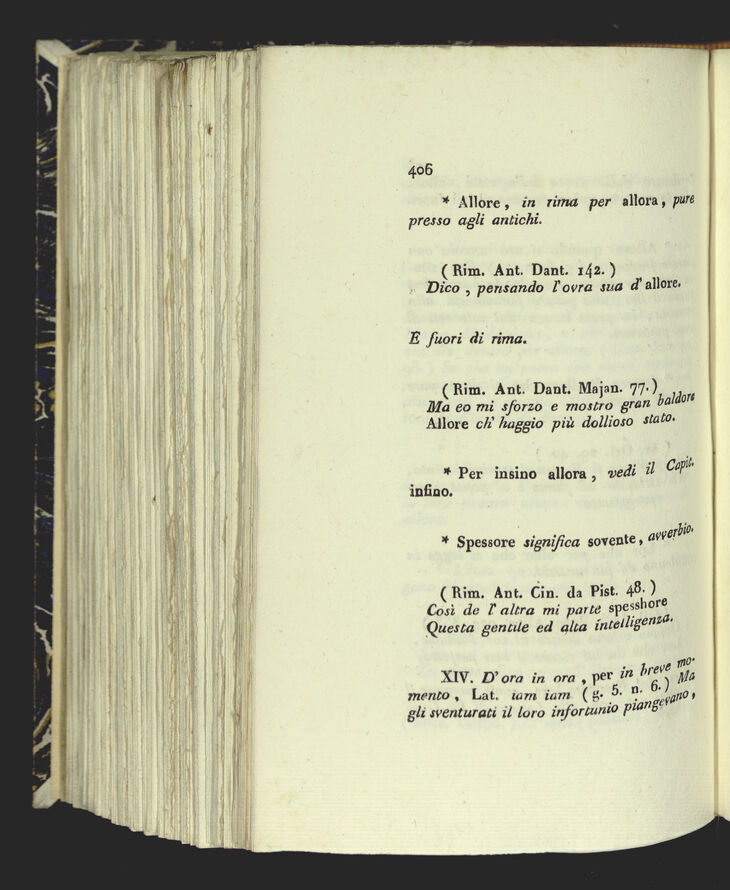 406
* Allore, in rima per allora, pure
presso agli antichi.
( Rim. Ant. Dant. 142. )
Dico, pensando l'ovra sua d'allore.
E fuori di rima.
( Rim. Ant. Dant. Majan. 77. )
Ma eo mi sforzo e mostro gran baldore
Allore ch' haggio più dollioso stato.
* Per insino allora, vedi il Capit.
infino.
* Spessore significa sovente, avverbio.
( Rim. Ant. Cin. da Pist. 48. )
Così de l'altra mi parte spesshore
Questa gentile ed alta intelligenza.
XIV. D'ora in ora, per in breve mo-
mento, Lat. iam iam ( g. 5. n. 6. ) Ma
gli sventurati il loro infortunio piangevano,